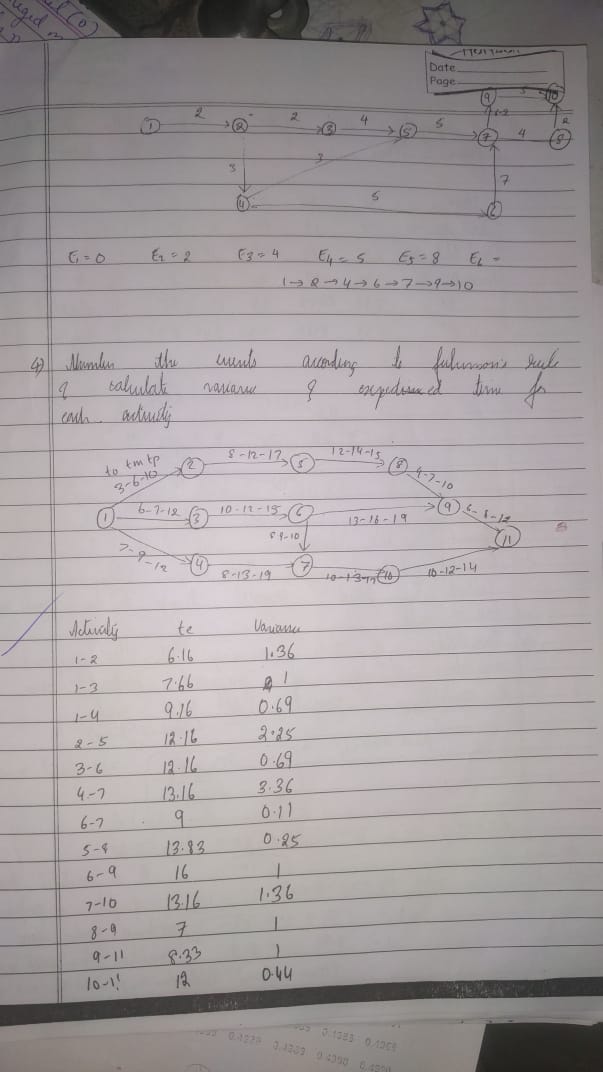 Date
Page
9 5 10
2 2 4 5 6-2 2
1 2 3 5 7 4 8
3 3
7
5
4 6
E1 = 0 E2 = 2 E3 = 4 E4 = 5 E5 = 8 E6 =
1→2→4→6→7→9→10
4) Number the events according to fulkerson's rule
& calculate variance & expected time for
each activity
to tm tp
3-6-10
8-12-17
12-14-15
4-7-10
1 2 5 8
6-7-12
10-12-15
13-16-19
3 6 9 11
8 9-10
7-9-12
8-13-19
10-13-17
10-12-14
4 7 10
Activity te Variance
1-2 6.16 1.36
1-3 7.66 1
1-4 9.16 0.69
2-5 12.16 2.25
3-6 12.16 0.69
4-7 13.16 3.36
6-7 9 0.11
5-8 13.83 0.25
6-9 16 1
7-10 13.16 1.36
8-9 7 1
9-11 8.33 1
10-11 12 0.44
0.4329 0.4303 0.4350